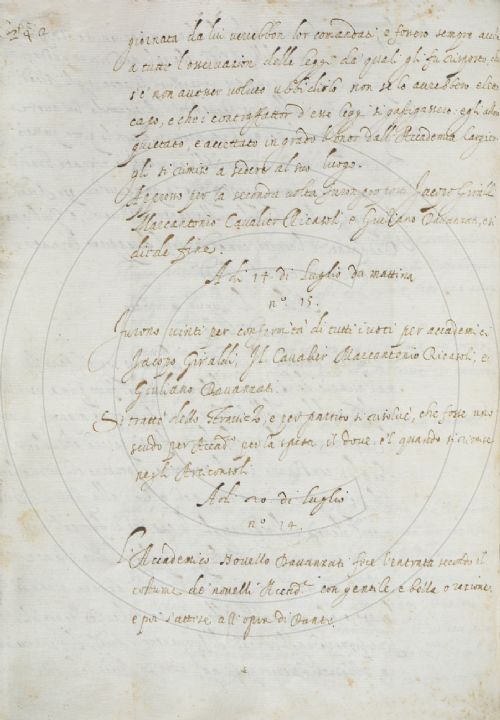 giornata da lui verebbon lor comandati e fossero sempre
a tutte l'osservazion delle leggi da quali gli fu risposto, che
s'è non avesser voluto ubbidirlo non se lo averebbero eletto
capo, e che i contraffattor d'esse leggi si gastigassero: egli
quietato, e accettato in grado l'onor dall' Accademia
gli si rimise a sedere al suo luogo.
per la seconda volta furon Jacopo Giraldi
Marcantonio Cavalier Ricasoli, e Giuliano Davanzati, e si
diede fine.
A dì 14 di Luglio da mattina
n.º 15.
Furono vinti per conformità di tutti i voti per accademici
Jacopo Giraldi, Il Cavalier Marcantonio Ricasoli, e
Giuliano Davanzati.
Si trattò dello Stravizo, e per partito si risolvé, che fosse uno
scudo per Accad.º per la spesa, il dove, e'l quando si rimise
negli Arciconsoli.
A dì 20 di Luglio
n.º 14.
L'Accademico Novello Davanzati fece l'entrata secondo il
costume de' novelli Accad.ci con gentile, e bella orazione,
e poi s'attese all'opera di Dante.